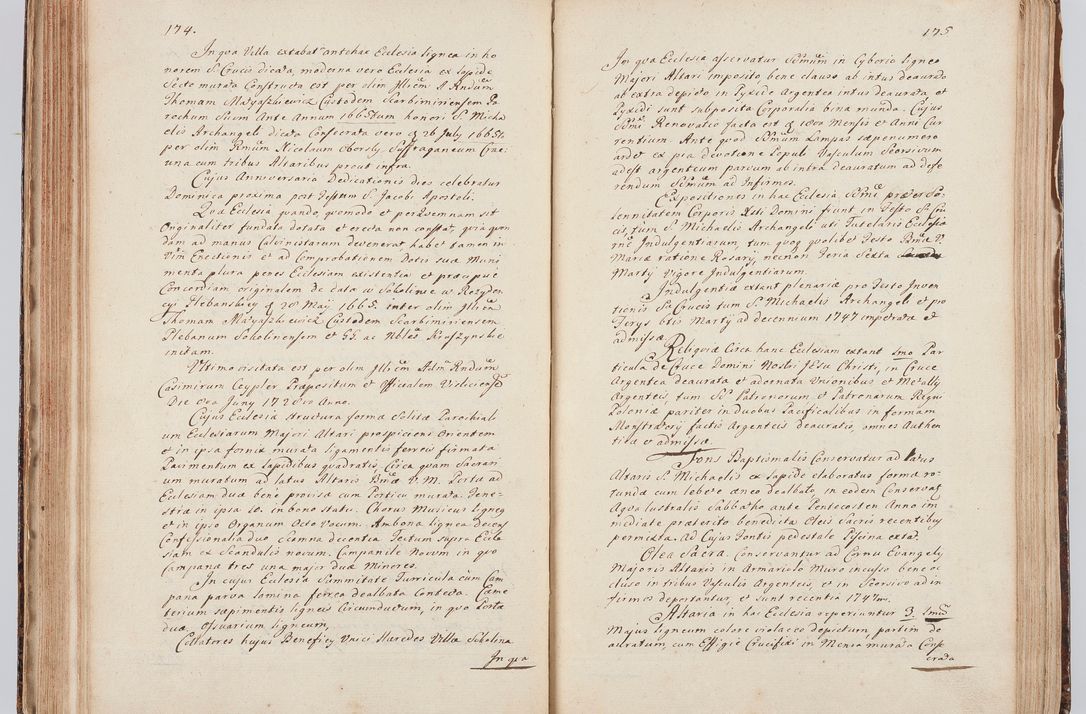 174.
In qva Villa extabat antehac Ecclesia lignea in ho
norem S. Crucis dicata, moderna vero Ecclesia ex lapide
Secto murata Constructa est per olim Illrem A Rndum
Thomam Matyaszkiewicz Custodem Scarbimiriensem Pa
rochum Suum Ante Annum 1665tum honori S. Micha
elis Archangeli dicata Consecrata vero d 26 July 1665to
per olim Rmum Nicolaum Oborsky Suffraganeum Crac:
una cum tribus Altaribus prout infra.
Cujus Anniversaria Dedicationis dies celebratur
Dominica proxima post Festum S. Jacobi Apostoli.
Qva Ecclesia quando, quomodo et per Quemnam sit
Originaliter fundata dotata et erecta non constat, quia quon
dam ad manus Calvinistarum devenerat, habet tamen in
Vim Erectionis et ad Comprobationem Dotis suæ Muni
menta plura penes Ecclesiam existentia et præcipue
Concordiam originalem de data in Sokolinie w Rezyden
cyi Plebanskiey d 28 May 1665. inter olim Illrem
Thomam Matyaszkiewicz Custodem Scarbimiriensem
Plebanum Sokolinensem et GG. ac Nobles Kruszynskie
initam.
Ultimo visitata est per olim Illrem Adm Rndum
Casimirum Ceypler Præpositum et Officialem Vislicensem
Die 8va Juny 1728vo Anno.
Cujus Ecclesia structura forma Solitæ Parochiali
um Ecclesiarum Majori Altari prospiciens Orientem
et in ipsa fornix murata ligamentis ferreis firmata
Pavimentum ex lapidibus quadratis, Circa quam Sacrari
um muratum ad latus Altaris Bmæ V. M. Portæ ad
Ecclesiam duæ bene provisæ cum Porticu murata Fene-
stræ in ipsa 10. in bono statu. Chorus Musicus ligneus
et in ipso Organum Octo Vocum. Ambona lignea decens
Confessionalia duo Scamna decentia Tectum supra Eccle
siam ex Scandulis novum. Campanile Novum in quo
Campanæ tres una major duæ Minores.
In cujus Ecclesia Summitate Turricula cum Cam
pana parva lamina ferrea dealbata Contecta. Cæme
terium sæpimentis ligneis Circumductum, in quo Portæ
duæ, Ossuarium ligneum,
Collatores hujus Beneficy Unici Hæredes Villæ Sokolina
In qua
175
In qva Ecclesia asservatur SSmum in Cyborio ligneo
Majori Altari imposito, bene clauso ab intus deaurato
ab extra depicto in Pyxide argentea intus deaurata, et
Pyxidi sunt subposita Corporalia bina munda. Cujus
SSmi Renovatio facta est d 18va Mensis et Anni Cur
rentium. Ante quod SSmum Lampas sæpenumero
ardet ex pia devotione Populi Vasculum Seorsivum
adest argenteum parvum ab intra deauratum ad defe
rendum SSmum ad Infirmos.
Expositiones in hac Ecclesia SSmi præter So-
lennitatem Corporis Xsti Domini fiunt in Festo S. Cru
cis, tum S. Michaelis Archangeli uti Tutelaris Ecclesiæ
rne Indulgentiarum, tum quoq qvolibet Festo Bmæ V.
Mariæ ratione Rosary, necnon Feria Sexta
Marty Vigore Indulgentiarum.
Indulgentiæ extant plenariæ pro Festo Inven
tionis S. Crucis tum S. Michaelis Archangeli et pro
Ferys 6tis Marty ad decennium 1747 impetratæ et
admissæ.
Reliquiæ Circa hanc Ecclesiam extant 1mo Par
ticula de Cruce Domini Nostri Jesu Christi, in Cruce
Argentea deaurata et adornata Unionibus et Metally
Argenteis, tum SSt Patronorum et Patronarum Regni
Poloniæ pariter in duobus Pacificalibus in formam
Monstratory factis Argenteis deauratis, omnes Authen
ticæ et admissæ.
Fons Baptismalis Conservatur ad latus
Altaris S. Michaelis ex lapide elaboratus forma ro-
tunda cum lebete æneo dealbato, in eodem Conservatur
Aqva lustralis Sabbatho ante Pentecosten Anno im
mediate præterito benedicta Oleis Sacris recentibus
permixta. Ad Cujus Fontis pedestale Piscina extat.
Olea Sacra. Conservantur ad Cornu Evangely
Majoris Altaris in Armariolo Muro incusso bene oc
cluso in tribus Vasculis Argenteis, et in Seorsivo ad in
firmos deportantur, et sunt recentia 1747mi.
Altaria in hac Ecclesia reperiuntur 3. 1mum
Majus ligneum colore violaceo depictum, partim de
auratum, cum Effigie Crucifixi in Mensa murata Conse
crata